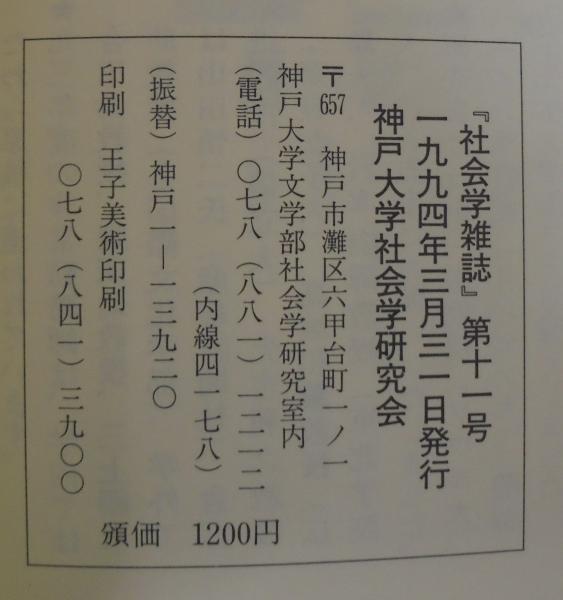 『社会学雑誌』 第十一号
一九九四年三月三一日発行
神戸大学社会学研究会
〒657 神戸市灘区六甲台町一ノ一
神戸大学文学部社会学研究室内
(電話)〇七八(八八一)一二一二
(内線四一七八)
(振替)神戸一―一三九二〇
印刷 王子美術印刷
〇七八(八四一)三九〇〇
頒価 1200円